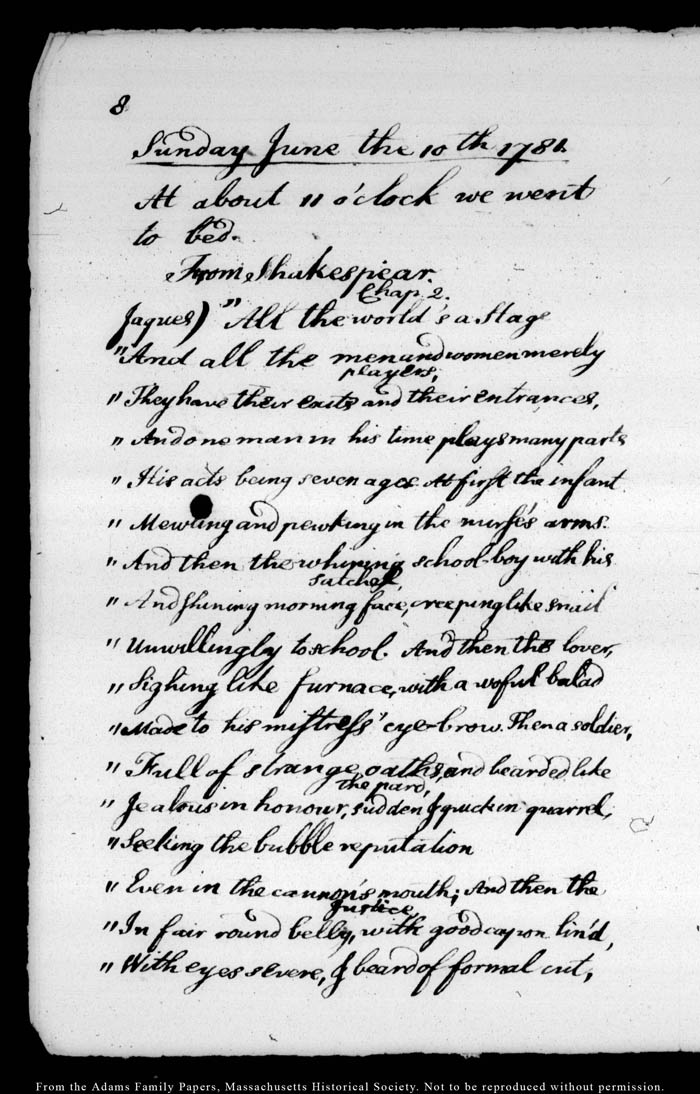 8
Sunday June the 10th 1781.
At about 11 o'clock we went
to bed.
From Shakespear.
Chap. 2.
Jaques) "All the world's a Stage
"And all the men and women merely
players;
" They have their exits and their entrances,
" And one man in his time plays many parts
" His acts being seven ages. At first the infant
" Mewling and pewking in the nurse's arms.
" And then the whining school-boy with his
satchel,
" And shining morning face, creeping like snail
" Unwillingly to school. And then the lover,
" Sighing like furnace, with a woful balad
" Made to his mistress' eye-brow. Then a soldier,
" Full of strange oaths, and bearded like
the pard,
" Jealous in honour, sudden & quick in quarrel,
" Seeking the bubble reputation
" Even in the cannon's mouth; And then the
Justice
" In fair round belly, with good capon lin'd,
" With eyes severe, & beard of formal cut,
From the Adams Family Papers, Massachusetts Historical Society. Not to be reproduced without permission.